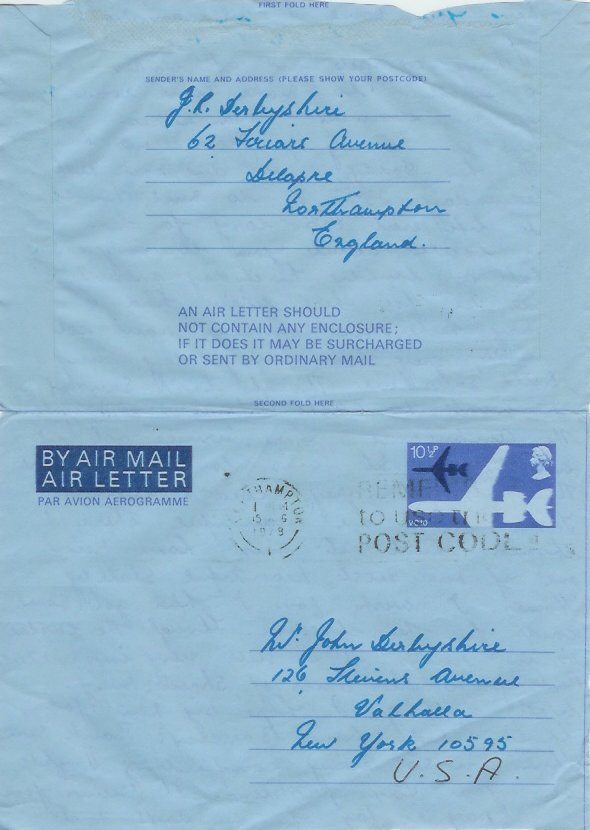 FIRST FOLD HERE
SENDER'S NAME AND ADDRESS (PLEASE SHOW YOUR POSTCODE)
J.R. Derbyshire
62 Friars Avenue
Delapre
Northampton
England.
AN AIR LETTER SHOULD
NOT CONTAIN ANY ENCLOSURE;
IF IT DOES IT MAY BE SURCHARGED
OR SENT BY ORDINARY MAIL
SECOND FOLD HERE
BY AIR MAIL
AIR LETTER
PAR AVION AEROGRAMME
10½P
VC10
POST CODE
Mr. John Derbyshire
126 Stevens Avenue
Valhalla
New York 10595
U.S.A.